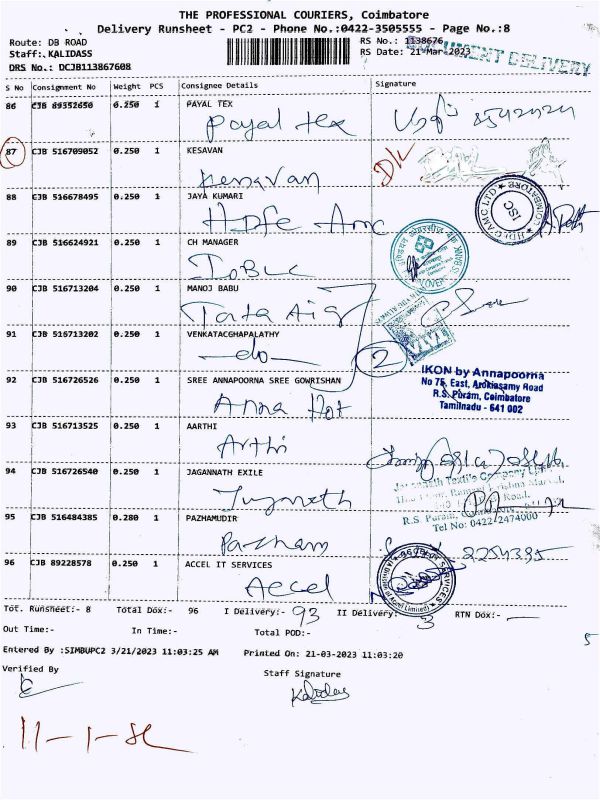 THE PROFESSIONAL COURIERS, Coimbatore
Delivery Runsheet - PC2 - Phone No.:0422-3505555 - Page No.:8
Route: DB ROAD
RS No.: 1138676
DOCUMENT DELIVERY
Staff: KALIDASS
RS Date: 21-Mar-2023
DRS No.: DCJB113867608
S No Consignment No Weight PCS Consignee Details Signature
86 CJB 89352650 0.250 1 PAYAL TEX
Payal tex
87 CJB 516709052 0.250 1 KESAVAN
Kesavan
88 CJB 516678495 0.250 1 JAYA KUMARI
HDFC Amc
HDFC AMC LTD COIMBATORE ISC
89 CJB 516624921 0.250 1 CH MANAGER
90 CJB 516713204 0.250 1 MANOJ BABU
Tata Aig
91 CJB 516713202 0.250 1 VENKATACGHAPALATHY
-do-
2
92 CJB 516726526 0.250 1 SREE ANNAPOORNA SREE GOWRISHAN
Anna Hot
IKON by Annapoorna
No 75, East, Arokiasamy Road
R.S. Puram, Coimbatore
Tamilnadu - 641 002
93 CJB 516713525 0.250 1 AARTHI
Arthi
94 CJB 516726540 0.250 1 JAGANNATH EXILE
Jagannath Textile Company
Road,
R.S. Puram,
Tel No: 0422-2474000
95 CJB 516484385 0.280 1 PAZHAMUDIR
Pazham
96 CJB 89228578 0.250 1 ACCEL IT SERVICES
Accel
Tot. Runsheet:- 8 Total Dox:- 96 I Delivery:- 93 II Delivery:- 3 RTN Dox:- —
Out Time:- In Time:- Total POD:-
5
Entered By :SIMBUPC2 3/21/2023 11:03:25 AM Printed On: 21-03-2023 11:03:20
Verified By
Staff Signature
Kalidas